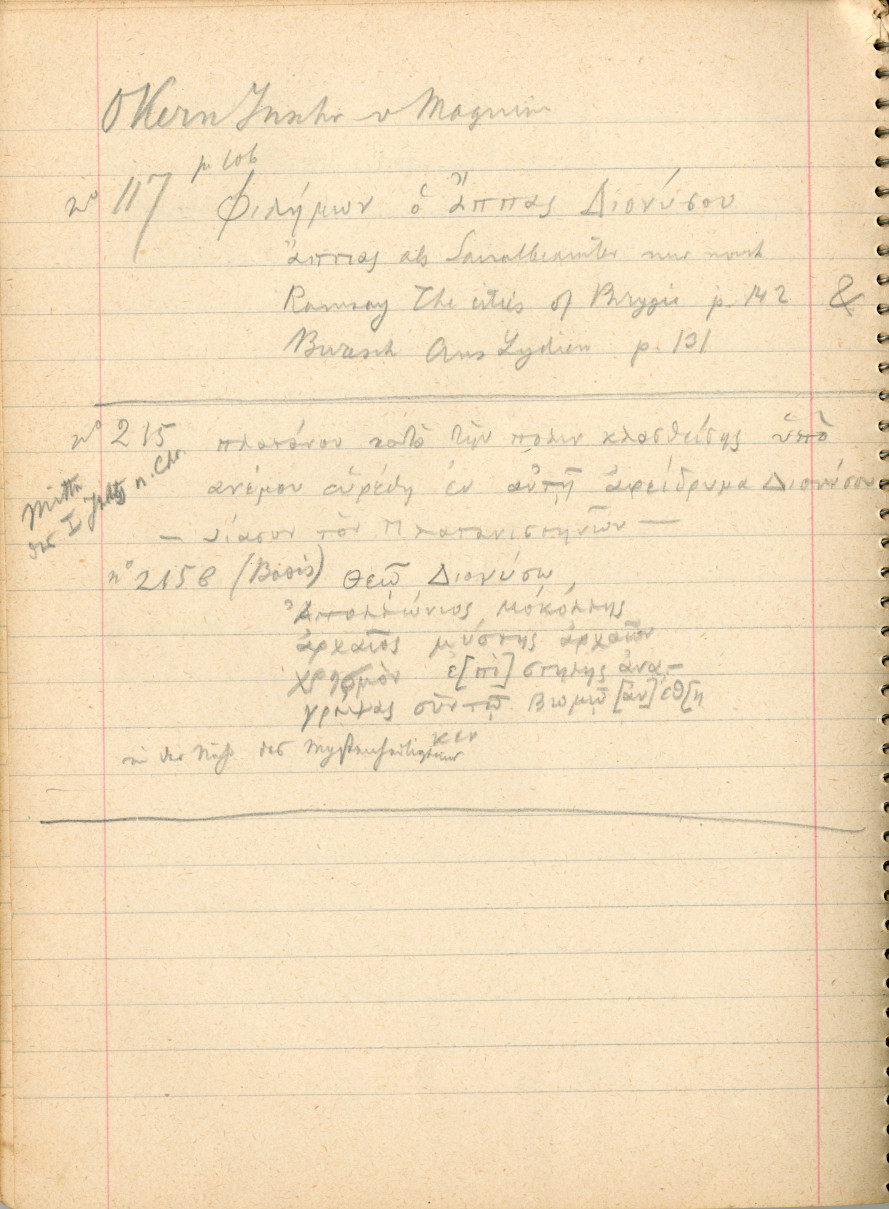 O Kern Inschr v Magnesia
p 106
no 117 Φιλήμων ὁ ἄππας Διονύσου
ἄππας als Sacralbeamter nur noch
Ramsay The cities of Phrygie p. 142 &
Buresch Aus Lydien p. 131
no 215 πλατάνου κατὰ τὴν πολιν κλασθείσης ὑπὸ
ανέμου εὑρέθη ἐν αὐτῇ ἀφείδρυμα Διονύσου
Mitte
des I Jhdts n. Chr.
— θίασον τὸν Πλατανιστηνῶν —
no 215 b (Basis) Θεῷ Διονύσῳ
Ἀπολλώνιος Μοκόλλης
ἀρχαῖος μύστης ἀρχαῖον
χρησμὸν ἐ[πὶ] στήλης ἀνα-
γράψας σὺν τῷ βωμῷ [ἀν]έθ[η
κεν
in der Nähe des Mystenheiligtums